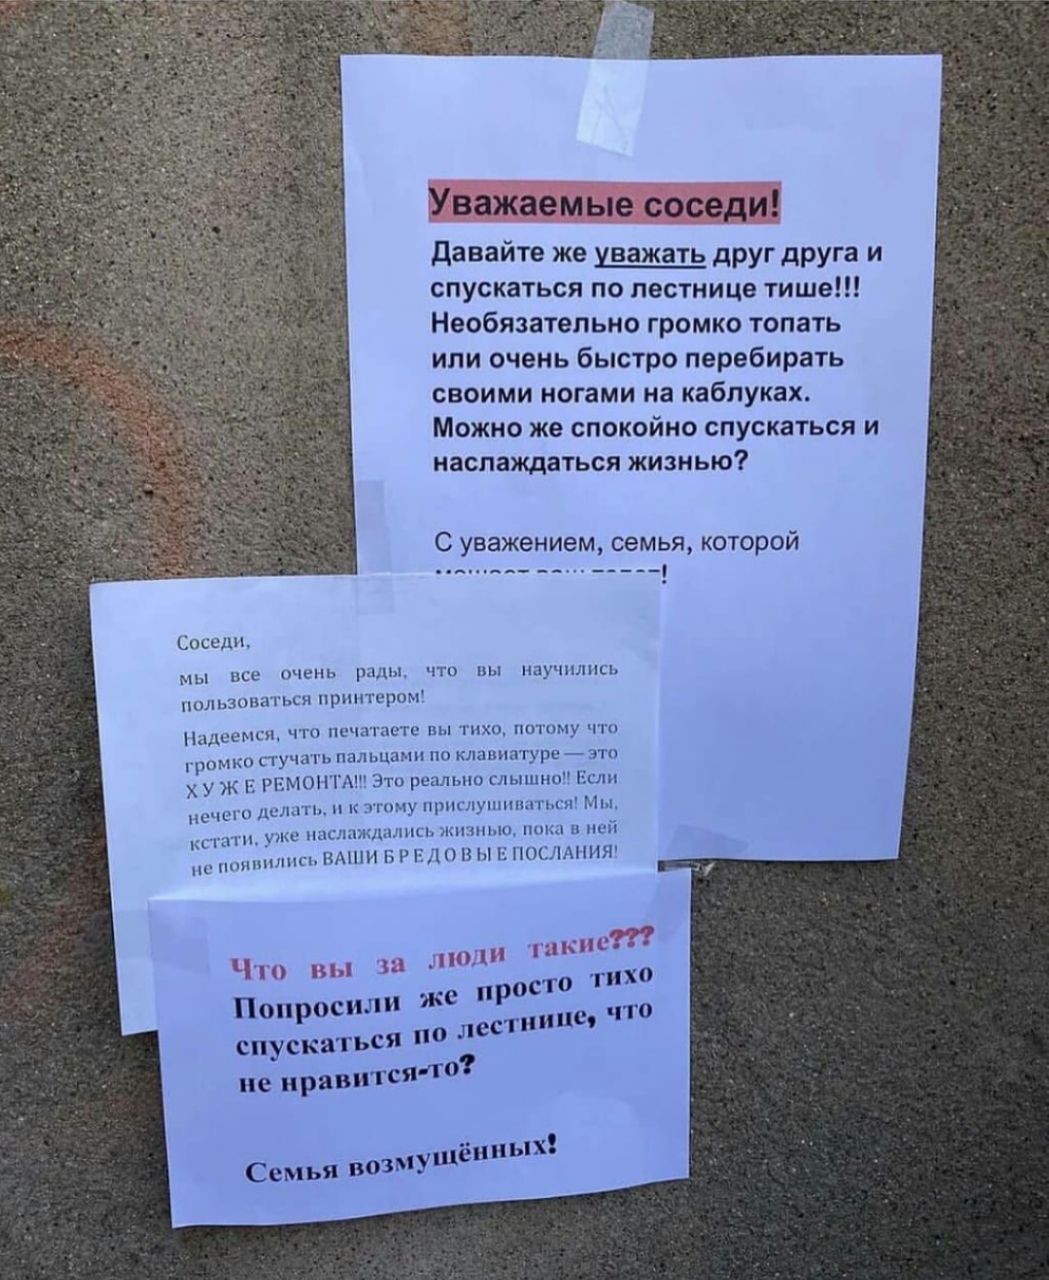 Уважаемые соседи!
Давайте же уважать друг друга и
спускаться по лестнице тише!!!
Необязательно громко топать
или очень быстро перебирать
своими ногами на каблуках.
Можно же спокойно спускаться и
наслаждаться жизнью?
С уважением, семья, которой
Соседи,
мы все очень рады, что вы научились
пользоваться принтером!
Надеемся, что печатаете вы тихо, потому что
громко стучать пальцами по клавиатуре — это
Х У Ж Е РЕМОНТА!!! Это реально слышно!! Если
нечего делать, и к этому прислушиваться! Мы,
кстати, уже наслаждались жизнью, пока в ней
не появились ВАШИ Б Р Е Д О В Ы Е ПОСЛАНИЯ!
Что вы за люди такие???
Попросили же просто тихо
спускаться по лестнице, что
не нравится-то?
Семья возмущённых!